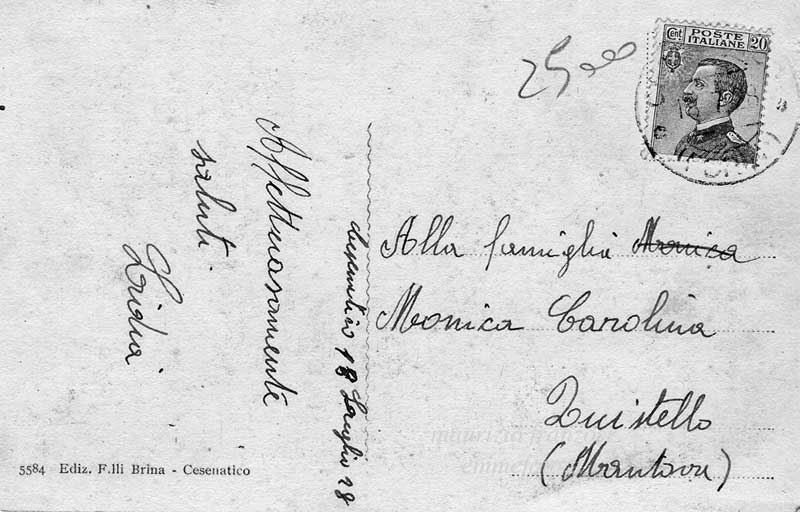 Affettuosamente
saluti
Lidia
Cesenatico 18 Luglio 28
25
Cent. POSTE ITALIANE 20
Alla famiglia Monica
Monica Carolina
Quistello
(Mantova)
5584 Ediz. F.lli Brina - Cesenatico